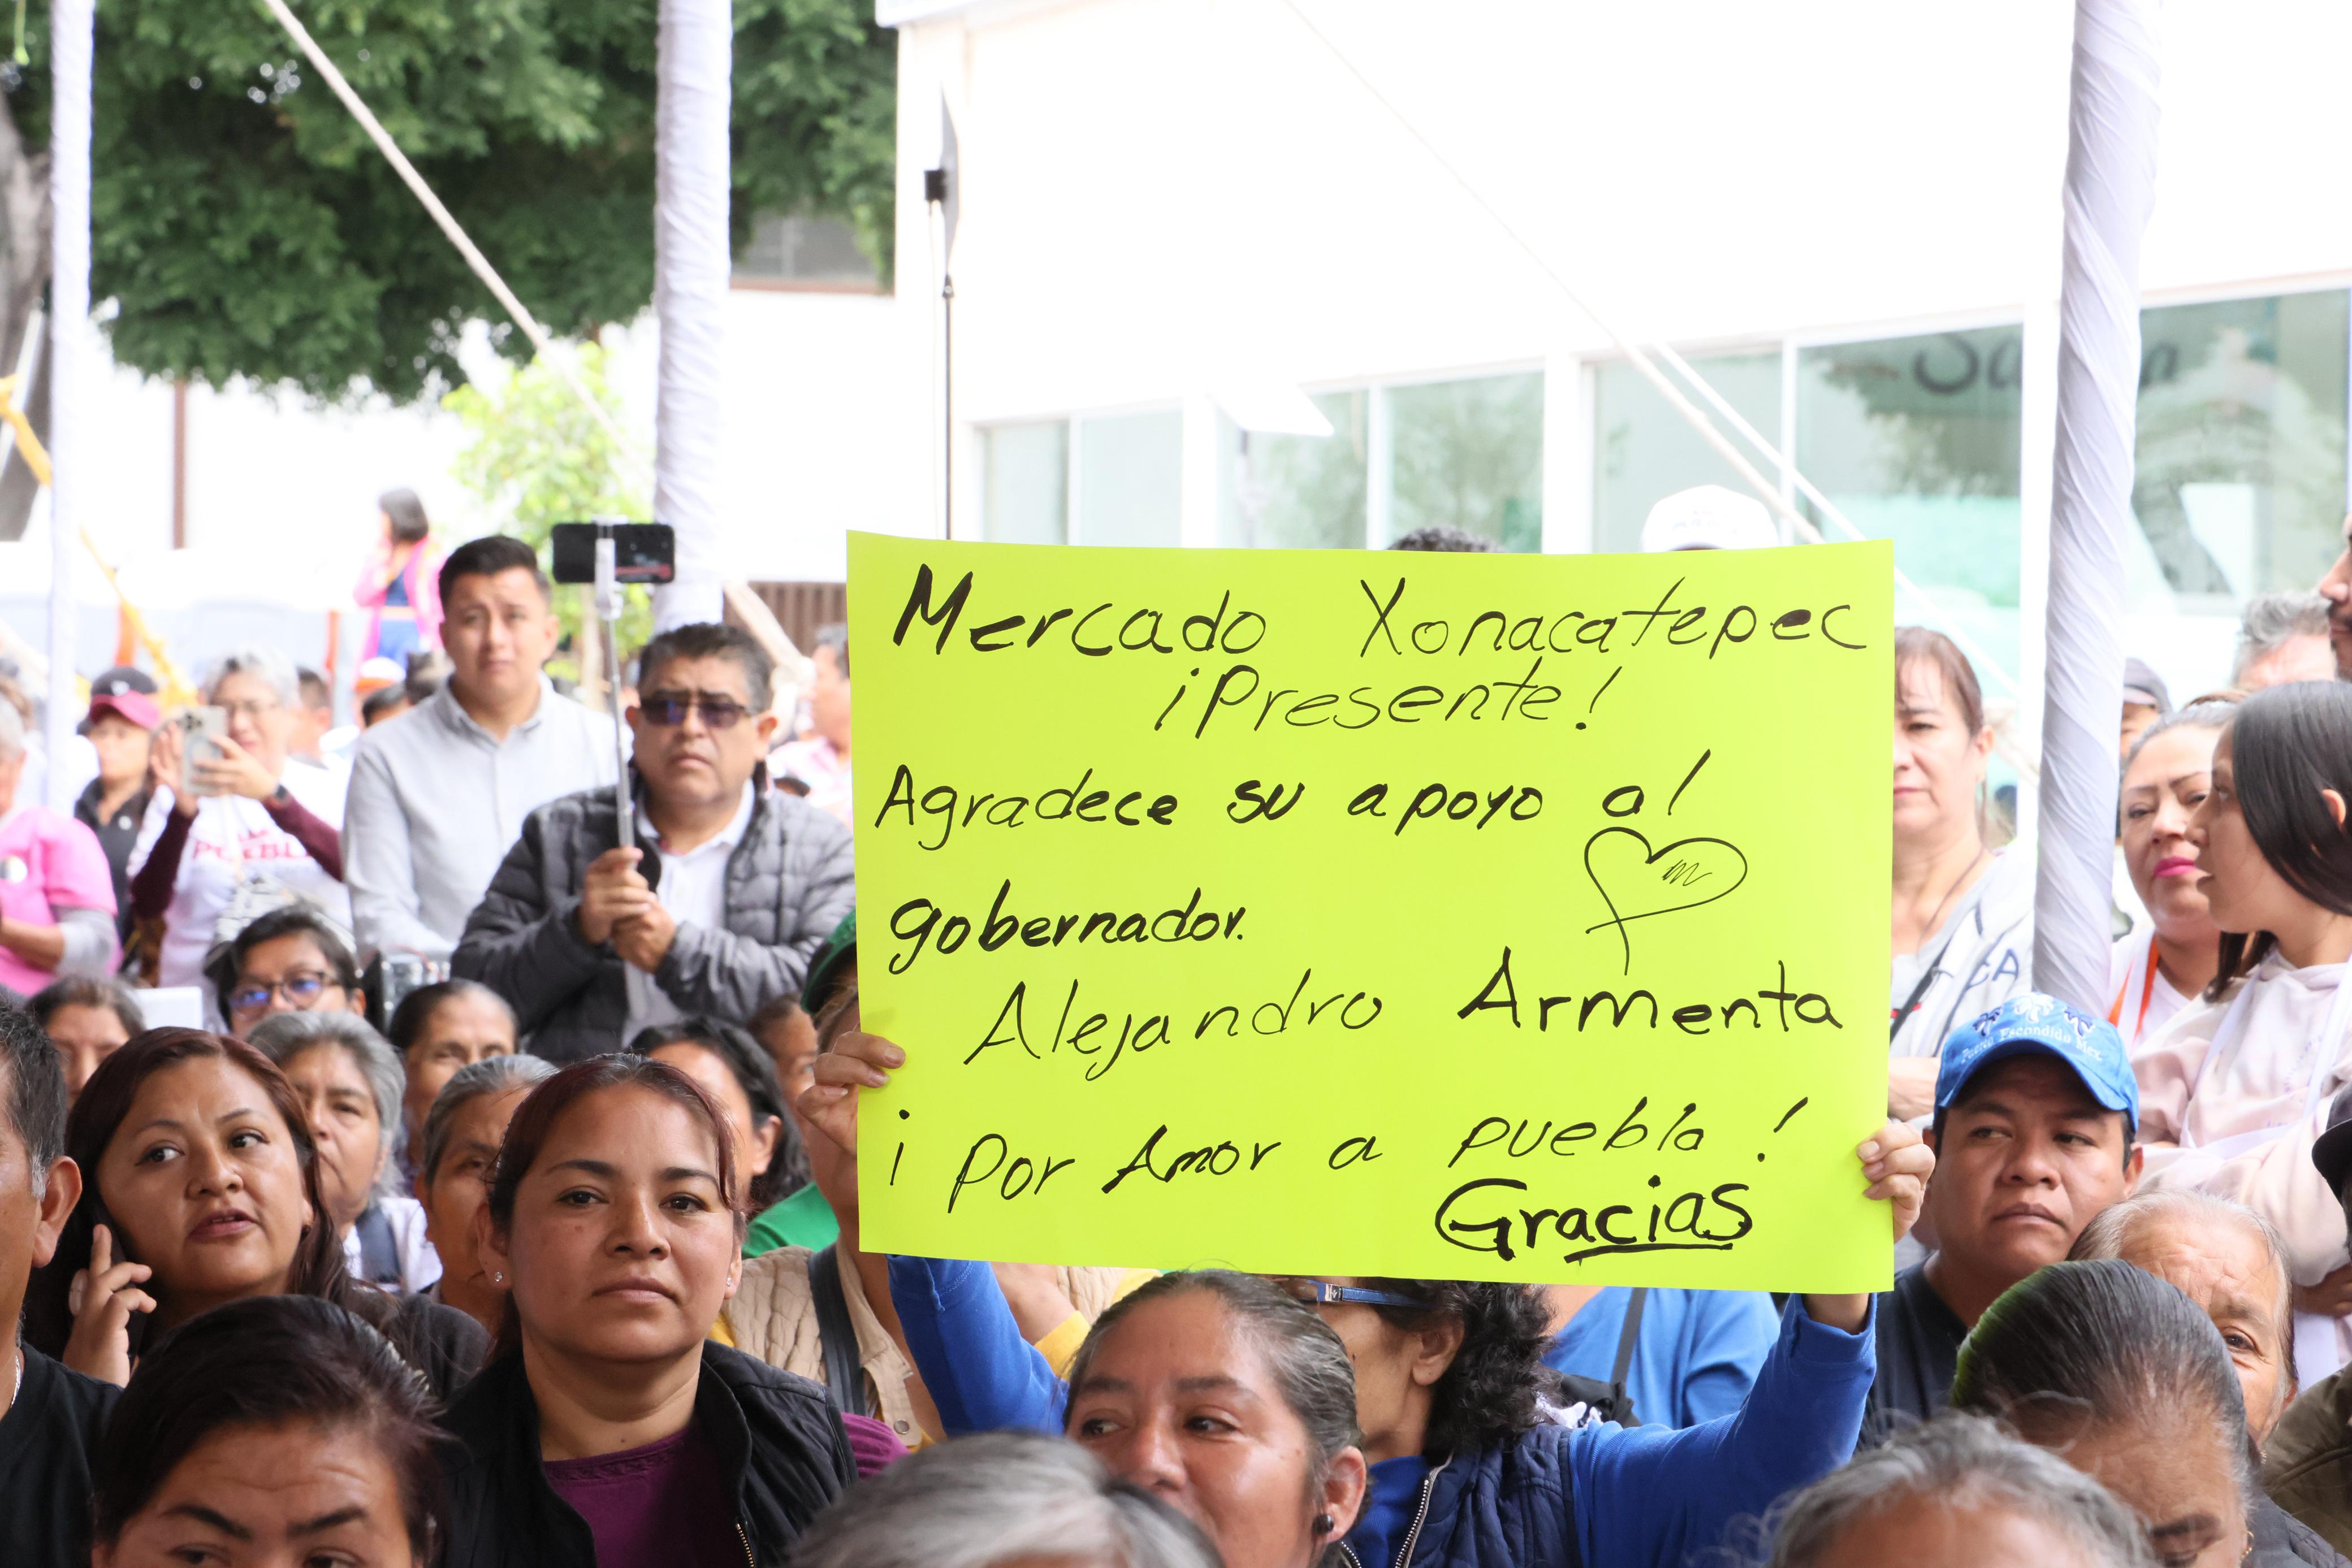 Mercado Xonacatepec
¡Presente!
Agradece su apoyo al
gobernador.
Alejandro Armenta
¡ Por Amor a puebla !
Gracias
Puerto Escondido Mex.